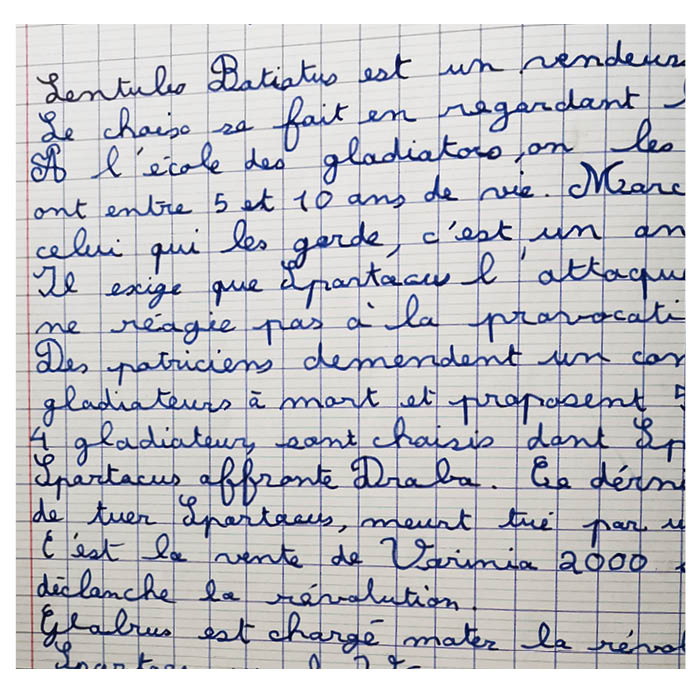 Lentulus Batiatus est un vendeur
Le choise se fait en regardant
A l'école des gladiators, on les
ont entre 5 et 10 ans de vie. Marc
celui qui les garde, c'est un an
Il exige que Spartacus l'attaqu
ne réagie pas à la provocati
Des patriciens demendent un com
gladiateurs à mort et proposent 5
4 gladiateurs sont choisis dont Sp
Spartacus affronte Draba. Ce dérni
de tuer Spartacus, meurt tué par u
C'est la vente de Varinia 2000
déclanche la révolution.
Glabrus est chargé mater la révol